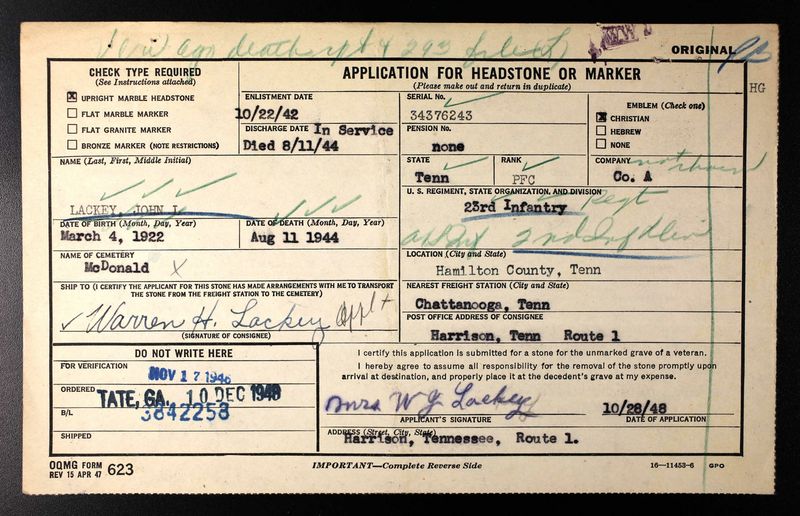 death rpt & 293 filed
ORIGINAL
HG
CHECK TYPE REQUIRED
(See Instructions attached)
☒ UPRIGHT MARBLE HEADSTONE
☐ FLAT MARBLE MARKER
☐ FLAT GRANITE MARKER
☐ BRONZE MARKER (NOTE RESTRICTIONS)
APPLICATION FOR HEADSTONE OR MARKER
(Please make out and return in duplicate)
ENLISTMENT DATE
10/22/42
DISCHARGE DATE In Service
Died 8/11/44
SERIAL No.
34376243
PENSION No.
none
EMBLEM (Check one)
☒ CHRISTIAN
☐ HEBREW
☐ NONE
STATE
Tenn
RANK
PFC
COMPANY not shown
Co. A
NAME (Last, First, Middle Initial)
LACKEY, JOHN L
U. S. REGIMENT, STATE ORGANIZATION, AND DIVISION
23rd Infantry Regt
2nd Inf Div
DATE OF BIRTH (Month, Day, Year)
March 4, 1922
DATE OF DEATH (Month, Day, Year)
Aug 11 1944
NAME OF CEMETERY
McDonald X
LOCATION (City and State)
Hamilton County, Tenn
SHIP TO (I CERTIFY THE APPLICANT FOR THIS STONE HAS MADE ARRANGEMENTS WITH ME TO TRANSPORT
THE STONE FROM THE FREIGHT STATION TO THE CEMETERY)
Warren H. Lackey Applt
(SIGNATURE OF CONSIGNEE)
NEAREST FREIGHT STATION (City and State)
Chattanooga, Tenn
POST OFFICE ADDRESS OF CONSIGNEE
Harrison, Tenn Route 1
DO NOT WRITE HERE
FOR VERIFICATION NOV 17 1948
ORDERED TATE, GA. 10 DEC 1948
B/L 3842258
SHIPPED
I certify this application is submitted for a stone for the unmarked grave of a veteran.
I hereby agree to assume all responsibility for the removal of the stone promptly upon
arrival at destination, and properly place it at the decedent's grave at my expense.
Mrs W J Lackey 10/28/48
APPLICANT'S SIGNATURE DATE OF APPLICATION
ADDRESS (Street, City, State)
Harrison, Tennessee, Route 1.
OQMG FORM
REV 15 APR 47 623
IMPORTANT—Complete Reverse Side
16—11453-6 GPO